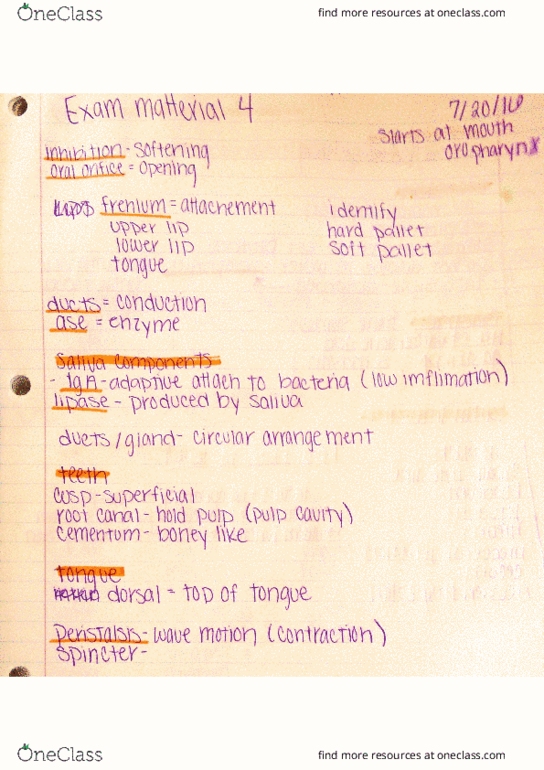 OneClass
find more resources at oneclass.com
Exam matterial 4
7/20/16
starts at mouth
oropharynx
inhibition - softening
oral orifice = opening
frenium = attachement
upper lip
lower lip
tongue
identify
hard pallet
soft pallet
ducts = conduction
ase = enzyme
saliva components
- IgA - adaptive attach to bacteria (low imflimation)
lipase - produced by saliva
ducts/gland - circular arrangement
teeth
cusp - superficial
root canal - hold pulp (pulp cavity)
cementum - boney like
tongue
dorsal = top of tongue
peristalsis - wave motion (contraction)
spincter -
OneClass
find more resources at oneclass.com